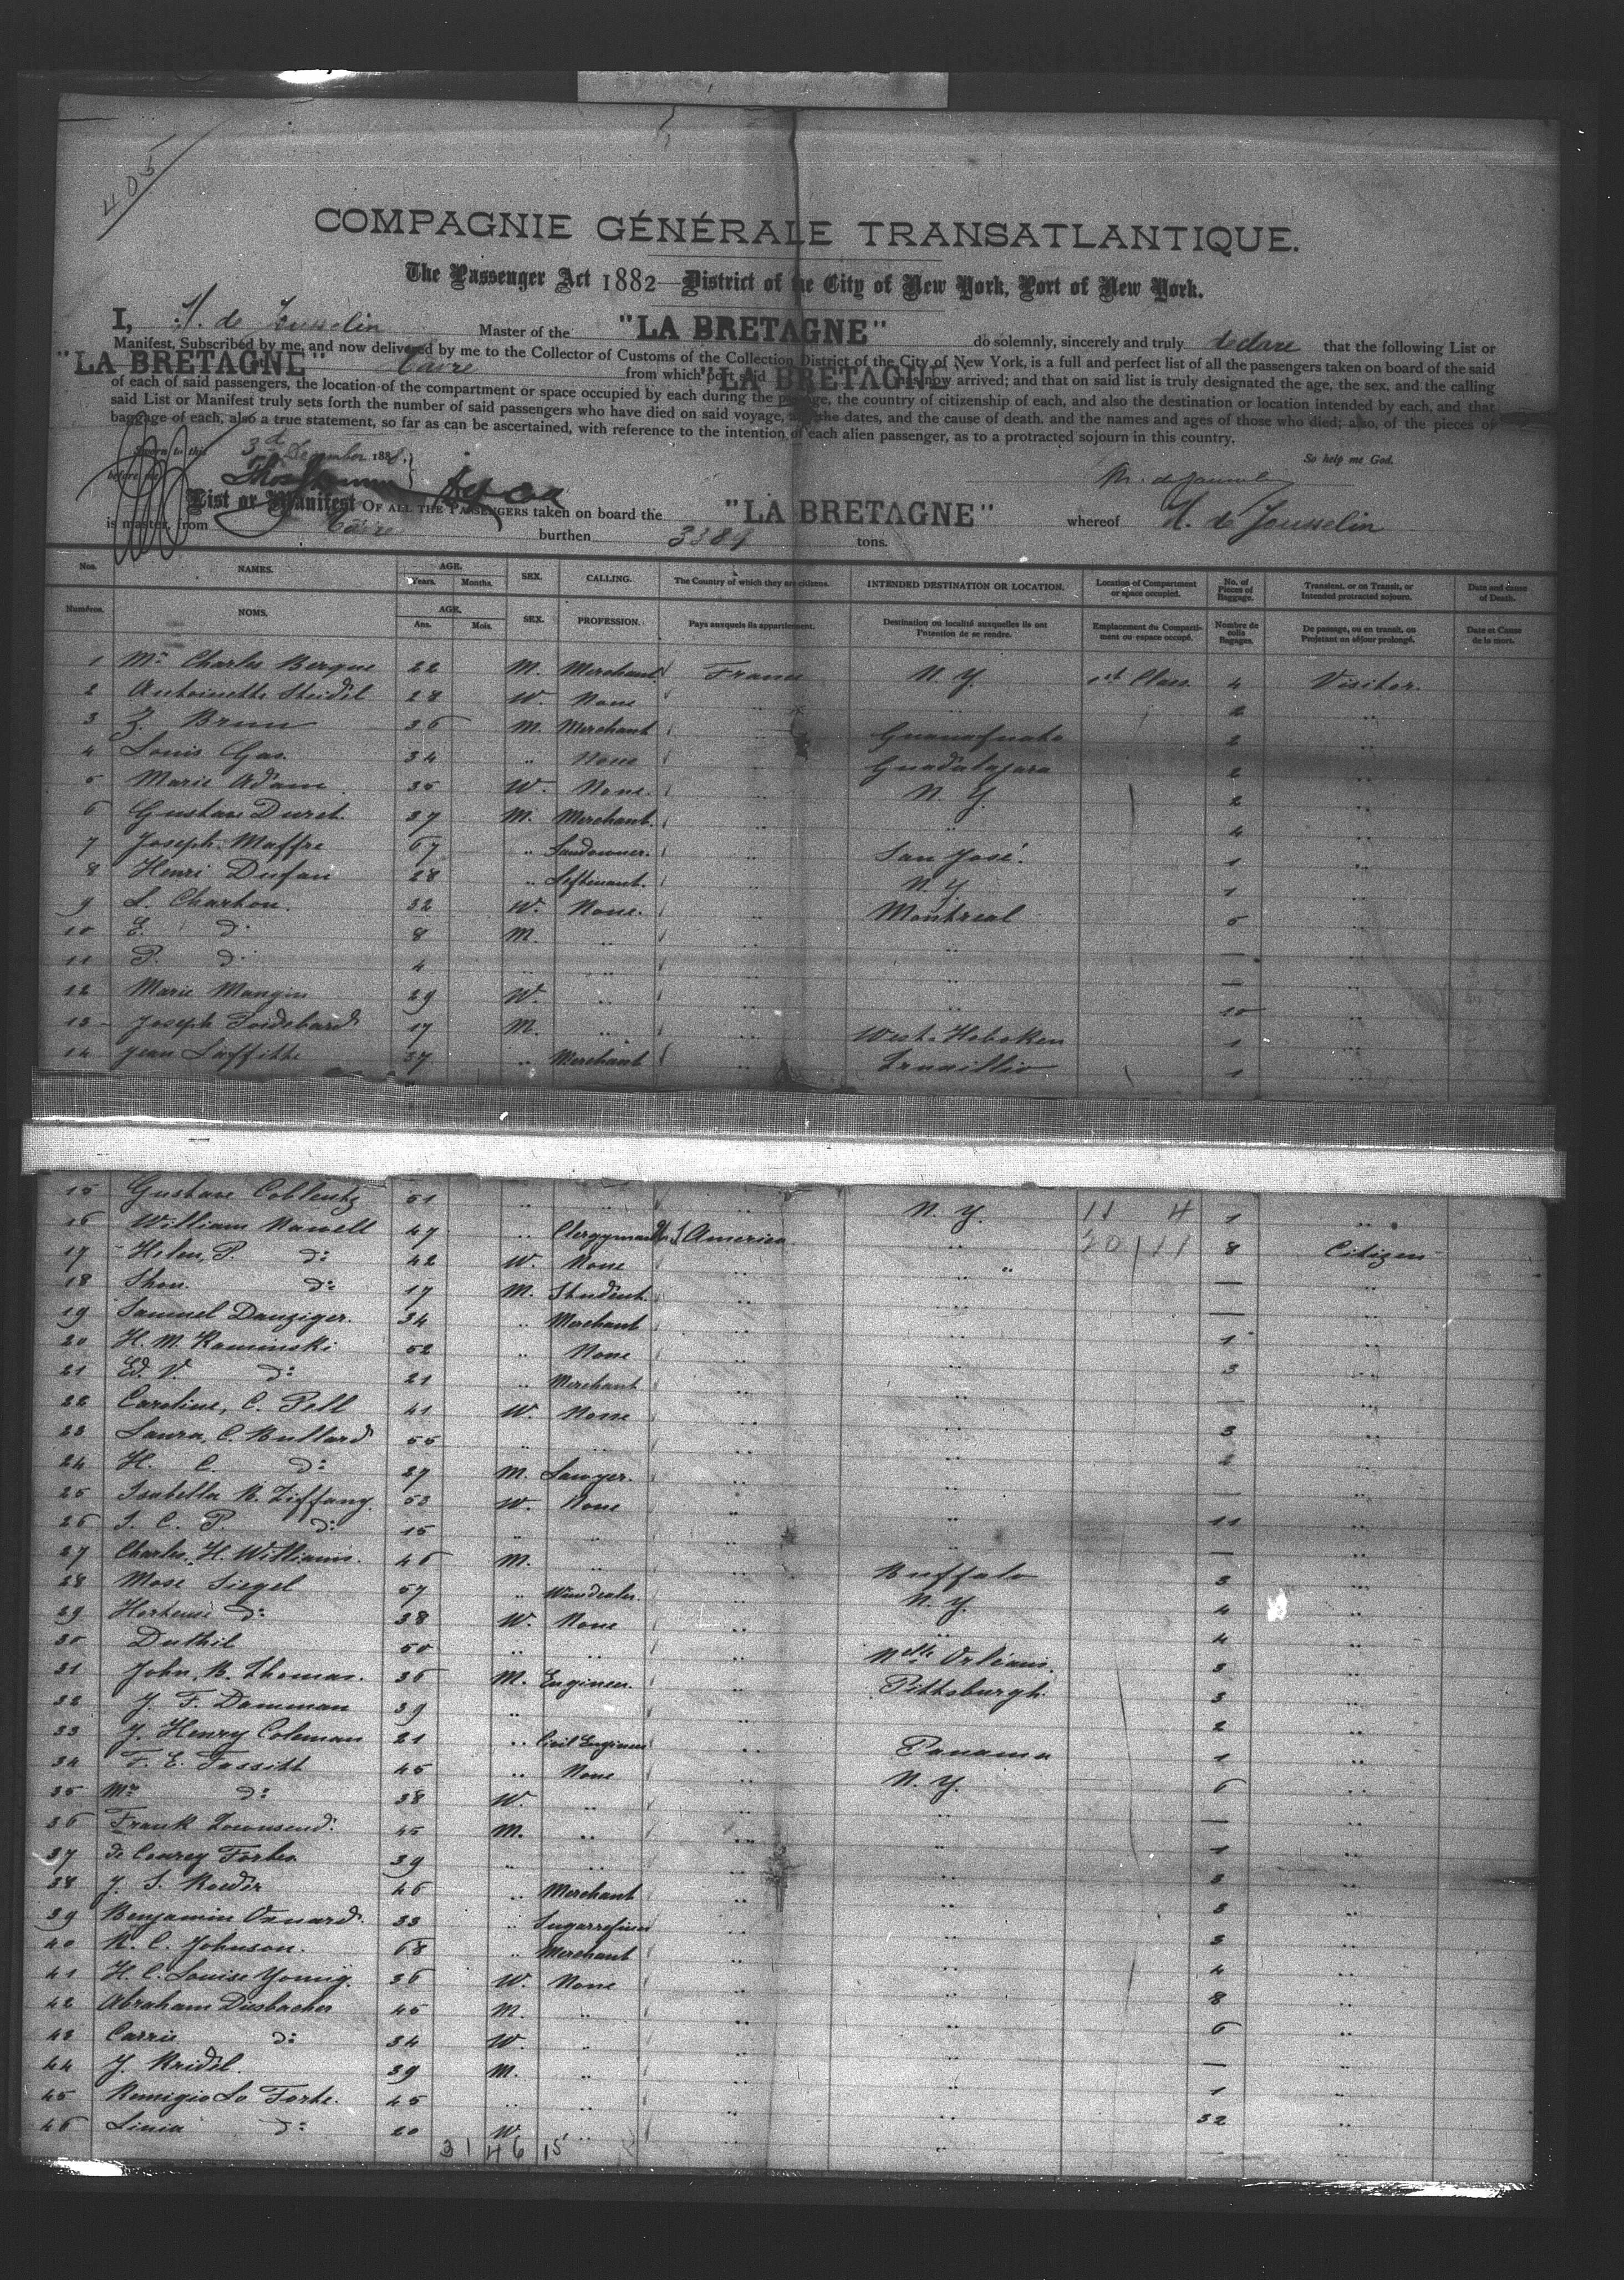 405
COMPAGNIE GÉNÉRALE TRANSATLANTIQUE.
The Passenger Act 1882 District of the City of New York, Port of New York.
I, de Jousselin Master of the "LA BRETAGNE" do solemnly, sincerely and truly declare that the following List or
Manifest, Subscribed by me, and now delivered by me to the Collector of Customs of the Collection District of the City of New York, is a full and perfect list of all the passengers taken on board of the said
"LA BRETAGNE" Havre from which port said "LA BRETAGNE" has now arrived; and that on said list is truly designated the age, the sex, and the calling
of each of said passengers, the location of the compartment or space occupied by each during the passage, the country of citizenship of each, and also the destination or location intended by each, and that
said List or Manifest truly sets forth the number of said passengers who have died on said voyage, the dates, and the cause of death, and the names and ages of those who died; also, of the pieces of
baggage of each, also a true statement, so far as can be ascertained, with reference to the intention of each alien passenger, as to a protracted sojourn in this country.
So help me God.
Sworn to this 3d December 1888
before me
List or Manifest OF ALL THE PASSENGERS taken on board the "LA BRETAGNE" whereof de Jousselin
is master, from Havre burthen 3389 tons.
Nos. NAMES. AGE. Years. Months. SEX. CALLING. The Country of which they are citizens. INTENDED DESTINATION OR LOCATION. Location of Compartment or space occupied. No. of Pieces of Baggage. Transient, or on Transit, or Intended protracted sojourn. Date and cause of Death.
Numéros. NOMS. AGE. Ans. Mois. SEX. PROFESSION. Pays auxquels ils appartiennent. Destination ou localité auxquelles ils ont l'intention de se rendre. Emplacement du Compartiment ou espace occupé. Nombre de colis Bagages. De passage, ou en transit, ou Projetant un séjour prolongé. Date et Cause de la mort.
1 Mr Charles Bergue 22 M. Merchant France N. Y. 1st Class 4 Visitor.
2 Antoinette Steidel 28 W. None " " 2 "
3 Z. Brun 36 M. Merchant " Guanajuato 2 "
4 Louis Gas. 34 " None " Guadalajara 2 "
5 Marie Adam 35 W. None. " N. Y. 2 "
6 Gustave Duret. 37 M. Merchant. " " 4 "
7 Joseph Maffre 67 " Landowner. " San José. 1 "
8 Henri Dufau 28 " Leftenant. " N. Y. 1 "
9 L. Charton. 32 W. None. " Montreal 5 "
10 E. do 8 M. " " " —
11 P. do 4 " " " " —
12 Marie Mangin 29 W. " " " 10 "
13 Joseph Poidebard 17 M. " " West-Hoboken 1 "
14 Jean Laffitte 37 " Merchant " Truxillio 1 "
15 Gustave Coblentz 51 " " " N. Y. 11 4 1 "
16 William Nawell 47 " Clergyman U. S. America " 20/11 8 Citizen
17 Helen, P. do 42 W. None " " — "
18 do 17 M. Student " " — "
19 Samuel Danziger. 34 " Merchant " " 1 "
20 H. M. Kaminski 52 " None " " 3 "
21 Ed. V. do 21 " Merchant " " — "
22 Caroline, C. Pell 41 W. None " " 3 "
23 Laura, C. Bullard 55 " " " " 2 "
24 H. C. do 27 M. Lawyer. " " — "
25 Isabella B. Tiffany. 53 W. None " " 11 "
26 S. C. P. do 15 " " " " — "
27 Charles, H. Williams. 46 M. " " Buffalo 3 "
28 Mose Siegel 57 " Winedealer. " N. Y. 4 "
29 Hortense do 38 W. None " " 4 "
30 Duthil 50 " " " Nelle Orléans. 3 "
31 John, B. Thomas. 36 M. Engineer. " Pittsburgh. 3 "
32 J. F. Damman 39 " " " " 2 "
33 J. Henry Coleman 21 " Civil Engineer " Panama 1 "
34 F. E. Tassitt 45 " None " N. Y. 6 "
35 Mrs do 38 W. " " " — "
36 Frank Townsend. 45 M. " " " 1 "
37 de Courcy Forbes 39 " " " " 3 "
38 J. S. Roeder 46 " Merchant " " 3 "
39 Benjamin Oxnard. 33 " Sugarrefiner " " 3 "
40 R. C. Johnson. 68 " Merchant " " 4 "
41 H. C. Louise Young. 36 W. None " " 8 "
42 Abraham Diesbacher 45 M. " " " 6 "
43 Carrie do 34 W. " " " — "
44 J. Kridel. 39 M. " " " 1 "
45 Remigio Lo Forte. 45 " " " " 32 "
46 Licia do 20 W. " " " — "
31 46 15